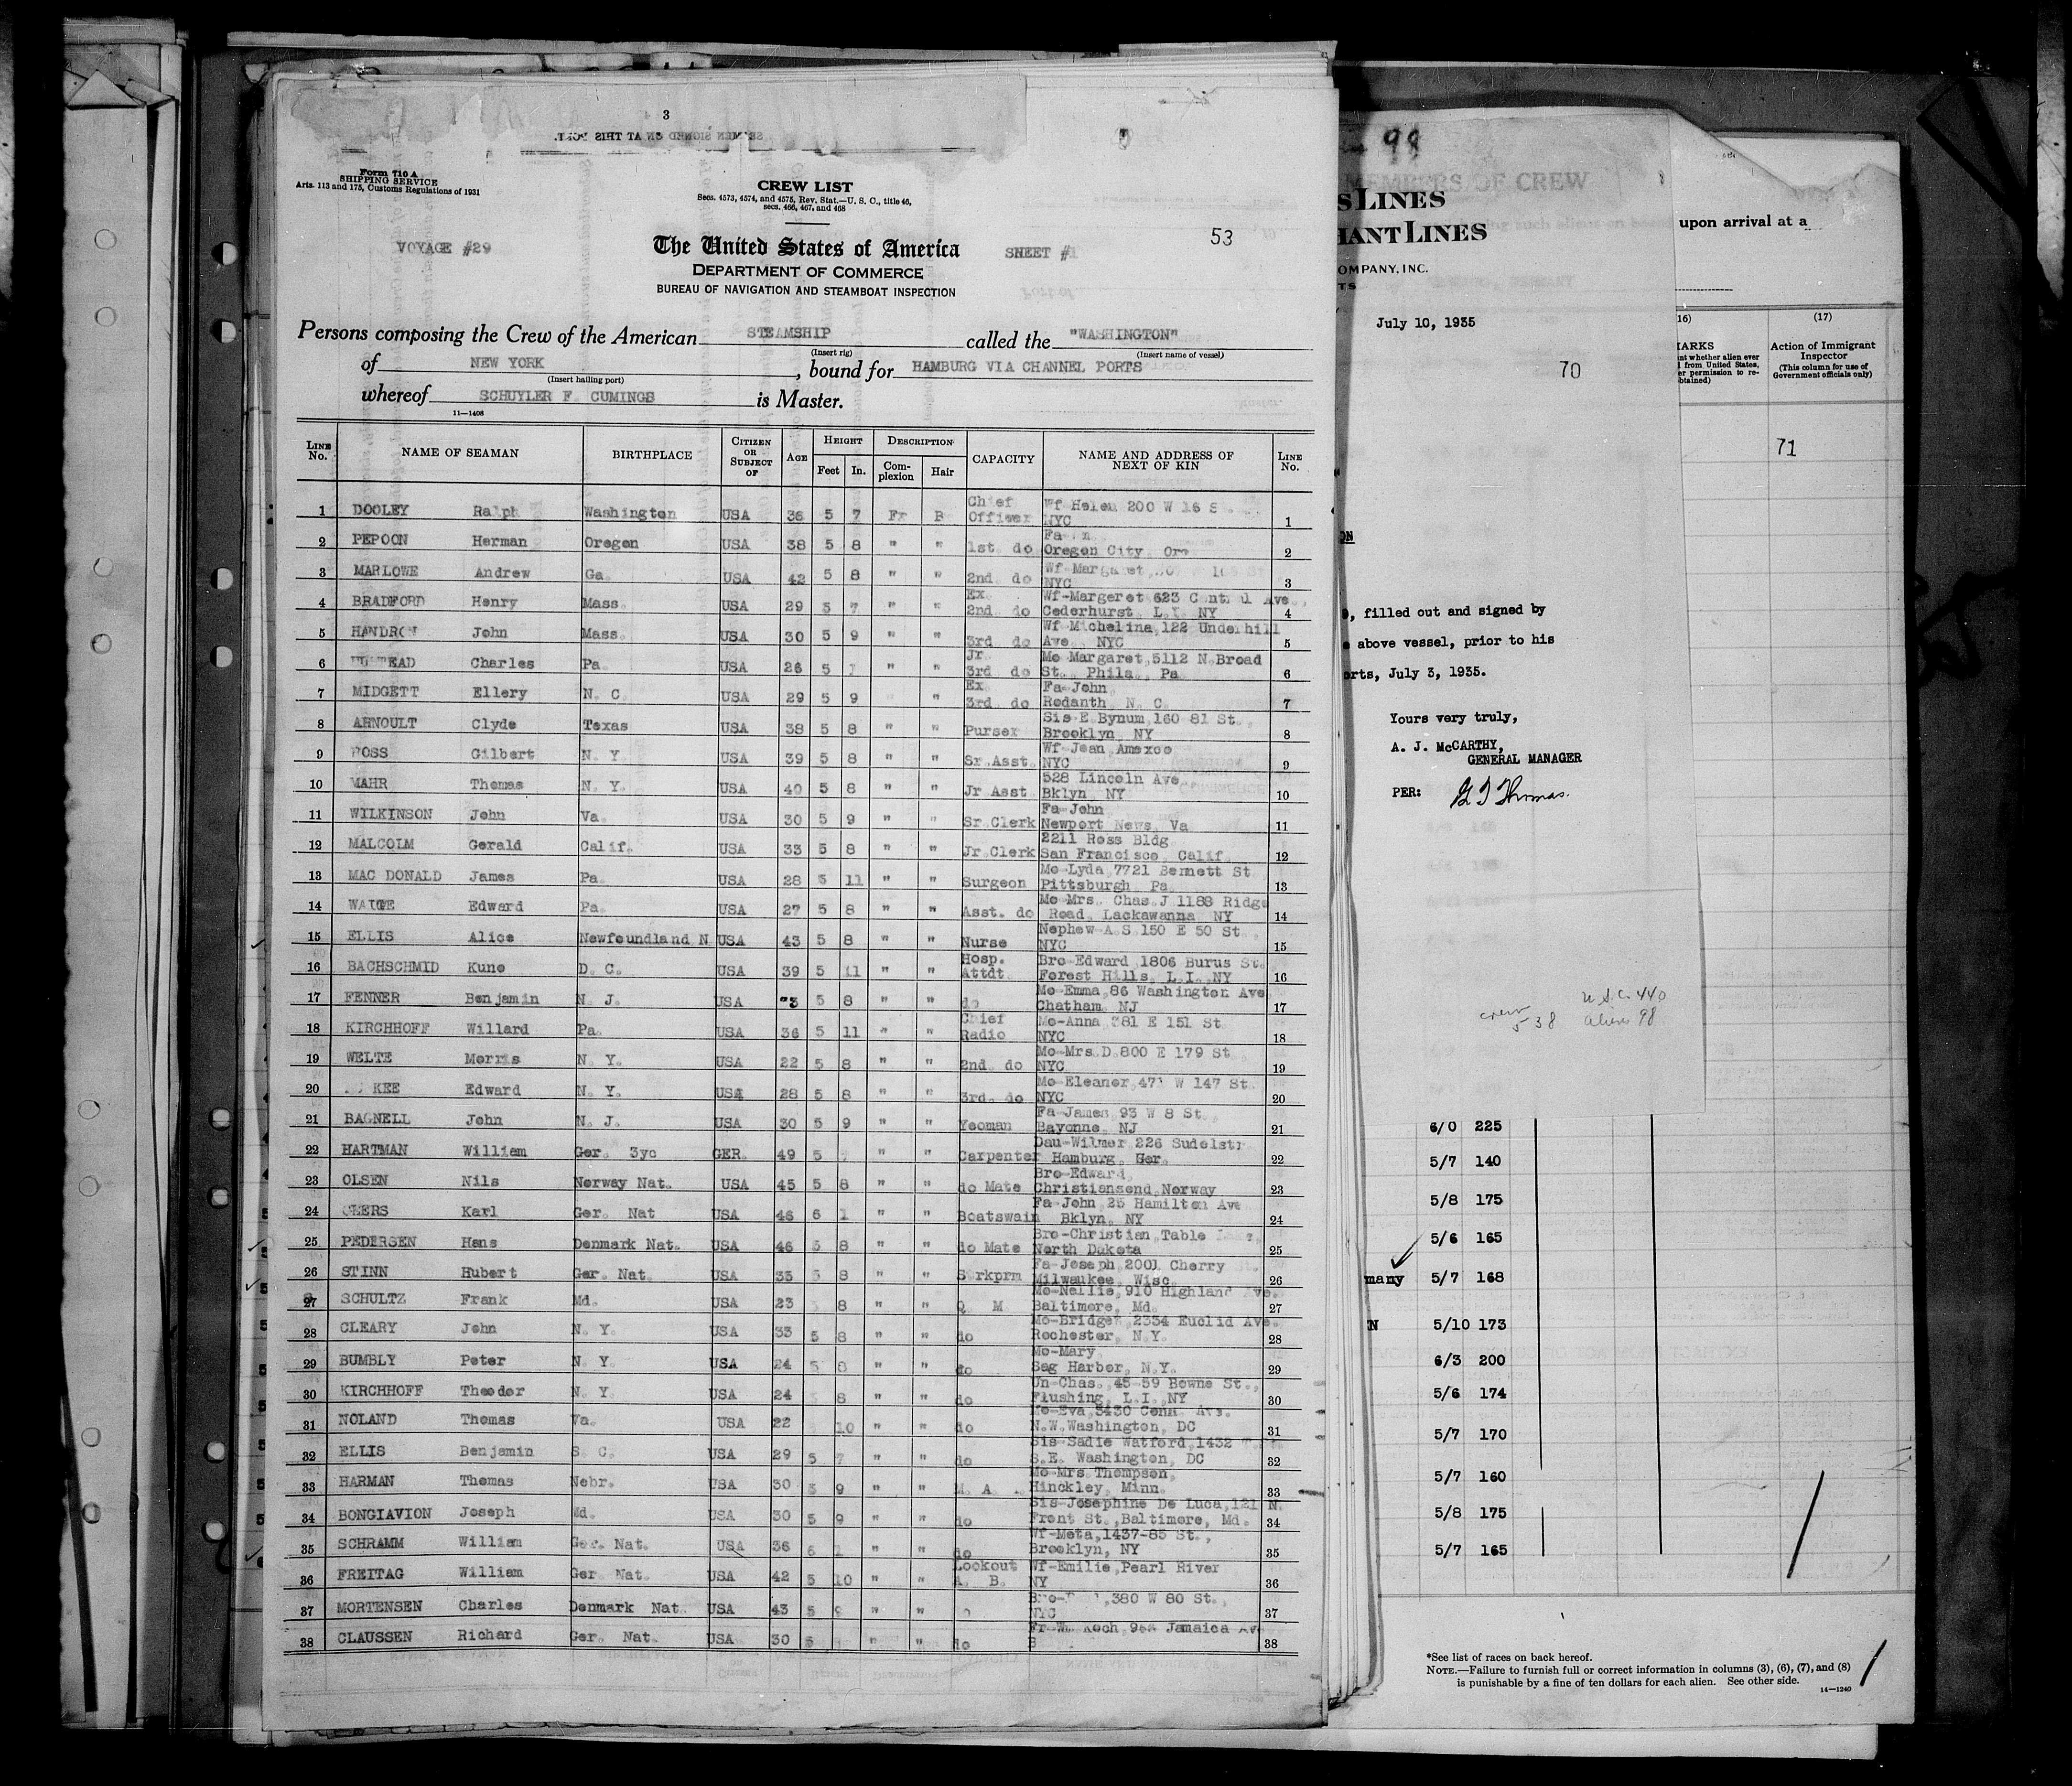 3
Form 710 A
SHIPPING SERVICE
Arts. 113 and 175, Customs Regulations of 1931
CREW LIST
Secs. 4573, 4574, and 4575, Rev. Stat.—U. S. C., title 46,
secs. 466, 467, and 468
VOYAGE #29
The United States of America
SHEET #1
53
DEPARTMENT OF COMMERCE
BUREAU OF NAVIGATION AND STEAMBOAT INSPECTION
Persons composing the Crew of the American STEAMSHIP called the "WASHINGTON"
(Insert rig) (Insert name of vessel)
of NEW YORK, bound for HAMBURG VIA CHANNEL PORTS
(Insert hailing port)
whereof SCHUYLER F. CUMINGS is Master.
11—1408
LINE No. NAME OF SEAMAN BIRTHPLACE CITIZEN OR SUBJECT OF AGE HEIGHT Feet In. DESCRIPTION Complexion Hair CAPACITY NAME AND ADDRESS OF NEXT OF KIN LINE No.
1 DOOLEY Ralph Washington USA 36 5 7 Fr B Chief Officer Wf Helen 200 W 16 S NYC 1
2 PEPOON Herman Oregon USA 38 5 8 " " 1st do Oregon City Ore 2
3 MARLOWE Andrew Ga. USA 42 5 8 " " 2nd do Wf-Margaret NYC 3
4 BRADFORD Henry Mass. USA 29 5 7 " " Ex. 2nd do Wf-Margeret 623 Central Ave., Cederhurst L.I. NY 4
5 HANDRON John Mass. USA 30 5 9 " " 3rd do Wf Michelina, 122 Underhill Ave. NYC 5
6 Charles Pa. USA 26 5 " Jr. 3rd do Mo Margaret, 5112 N. Broad St. Phila. Pa 6
7 MIDGETT Ellery N. C. USA 29 5 9 " Ex. 3rd do Fa-John, Rodanth N. C. 7
8 ARNOULT Clyde Texas USA 38 5 8 " " Purser Sis E Bynum, 160 81 St. Brooklyn NY 8
9 ROSS Gilbert N. Y. USA 39 5 8 " " Sr. Asst. Wf Jean, Amexco NYC 9
10 MAHR Thomas N. Y. USA 40 5 8 " " Jr Asst 528 Lincoln Ave. Bklyn NY 10
11 WILKINSON John Va. USA 30 5 9 " " Sr. Clerk Fa John Newport News, Va 11
12 MALCOLM Gerald Calif. USA 33 5 8 " " Jr. Clerk 2211 Ross Bldg. San Francisco, Calif. 12
13 MAC DONALD James Pa. USA 28 5 11 " " Surgeon Mo-Lyda, 7721 Bennett St Pittsburgh Pa. 13
14 WAITE Edward Pa. USA 27 5 8 " " Asst. do Mo Mrs. Chas. J 1188 Ridge Road, Lackawanna NY 14
15 ELLIS Alice Newfoundland N USA 43 5 8 " " Nurse Nephew A.S. 150 E 50 St. NYC 15
16 BACHSCHMID Kuno D. C. USA 39 5 11 " " Hosp. Attdt. Bro-Edward, 1806 Burus St. Forest Hills L.I. NY 16
17 FENNER Benjamin N. J. USA 5 8 " " do Mo-Emma, 86 Washington Ave Chatham, NJ 17
18 KIRCHHOFF Willard Pa. USA 36 5 11 " " Chief Radio Mo-Anna, 381 E 151 St NYC 18
19 WELTE Morris N. Y. USA 22 5 8 " " 2nd. do Mo-Mrs. D. 800 E 179 St. NYC 19
20 Edward N. Y. USA 28 5 8 " " 3rd. do Mo-Eleanor, W 147 St. NYC 20
21 BAGNELL John N. J. USA 30 5 9 " " Yeoman Fa-James, 93 W 8 St. Bayonne, NJ 21
22 HARTMAN William Ger. 3yc GER. 49 5 " " Carpenter Dau-Wilmer 226 Sudelstr Hamburg, Ger. 22
23 OLSEN Nils Norway Nat. USA 45 5 8 " " do Mate Bro-Edward, Christiansend, Norway 23
24 Karl Ger. Nat USA 46 6 1 " " Boatswain Fa-John 25 Hamilton Ave Bklyn, NY 24
25 PEDERSEN Hans Denmark Nat. USA 46 5 8 " " do Mate Bro-Christian, Table North Dakota 25
26 STINN Hubert Ger. Nat. USA 35 5 8 " " Fa-Joseph, 2001 Cherry Milwaukee, Wisc. 26
27 SCHULTZ Frank Md. USA 23 8 " " Q M. Mo-Nellie, 910 Highland Ave. Baltimore, Md. 27
28 CLEARY John N. Y. USA 33 5 8 " " do Mo-Bridget, 2334 Euclid Ave. Rochester, N.Y. 28
29 BUMBLY Peter N. Y. USA 24 5 8 " " do Mo-Mary, Sag Harbor, N.Y. 29
30 KIRCHHOFF Theodor N. Y. USA 24 8 " " do Un-Chas., 45-59 Bowne St., Flushing, L.I. NY 30
31 NOLAND Thomas Va. USA 22 10 " " do Mo-Eva, 3430 Conn. Ave. N.W. Washington, DC 31
32 ELLIS Benjamin S. C. USA 29 5 7 " " do Sis-Sadie Watford, 1432 S.E. Washington, DC 32
33 HARMAN Thomas Nebr. USA 30 5 9 " " M. A. Mo-Mrs. Thompson, Hinckley, Minn. 33
34 BONGIAVION Joseph Md. USA 30 5 9 " " do Sis-Josephine De Luca, 121 N. Front St., Baltimore, Md. 34
35 SCHRAMM William Ger. Nat. USA 36 6 1 " " do Wf-Meta, 1437-85 St., Brooklyn, NY 35
36 FREITAG William Ger Nat. USA 42 5 10 " " Lookout A. B. Wf-Emilie, Pearl River NY 36
37 MORTENSEN Charles Denmark Nat. USA 43 5 " " ,380 W 80 St., NYC 37
38 CLAUSSEN Richard Ger. Nat. USA 30 " " do Fr-Wm. Koch, Jamaica Av 38
98
MEMBERS OF CREW
S LINES
HANT LINES
OMPANY, INC.
TS
July 10, 1935
70
ON
, filled out and signed by
above vessel, prior to his
orts, July 3, 1935.
Yours very truly,
A. J. McCARTHY,
GENERAL MANAGER
PER: G T Thomas.
crew 538
U.S.C. 440
Aliens 98
upon arrival at a
(17)
Action of Immigrant Inspector
(This column for use of Government officials only)
71
6/0 225
5/7 140
5/8 175
5/6 165
many 5/7 168
N 5/10 173
6/3 200
5/6 174
5/7 170
5/7 160
5/8 175
5/7 165
*See list of races on back hereof.
NOTE.—Failure to furnish full or correct information in columns (3), (6), (7), and (8)
is punishable by a fine of ten dollars for each alien. See other side.
14—1240